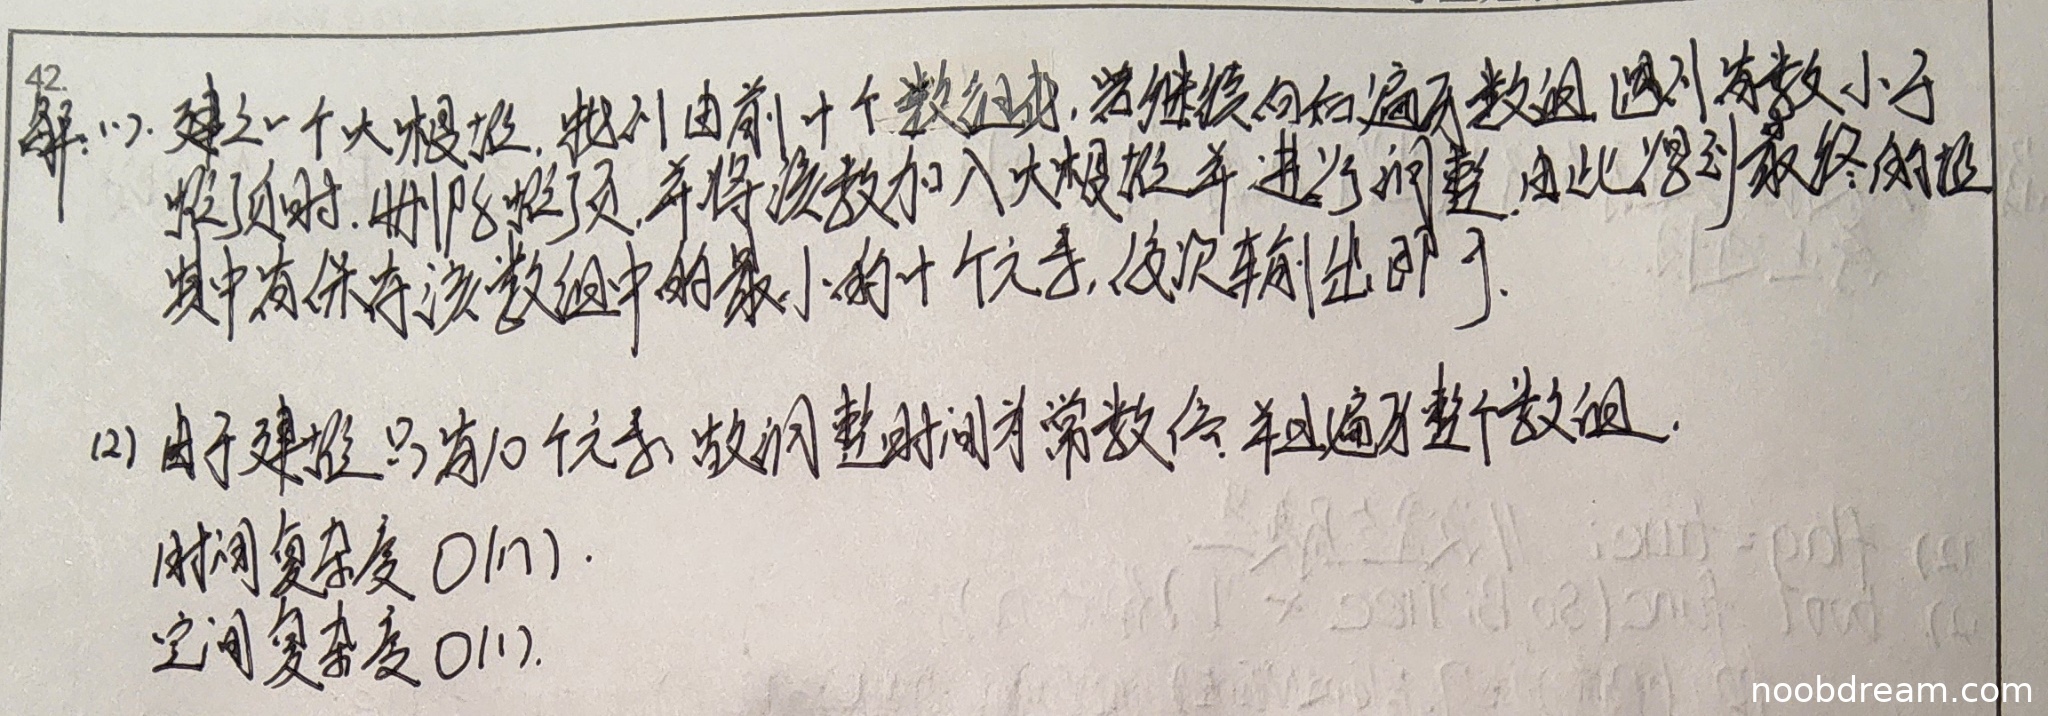 42.
解:(1). 建立一个大根堆,堆由前十个数组成,当继续向后遍历数组,遇到有数小于
堆顶时,删除堆顶,并将该数加入大根堆并进行调整,由此得到最终的堆
其中有保存该数组中的最小的十个元素,依次输出即可.
(2) 由于建堆只有10个元素,故调整时间为常数倍,并且遍历整个数组.
时间复杂度 O(n).
空间复杂度 O(1).
noobdream.com